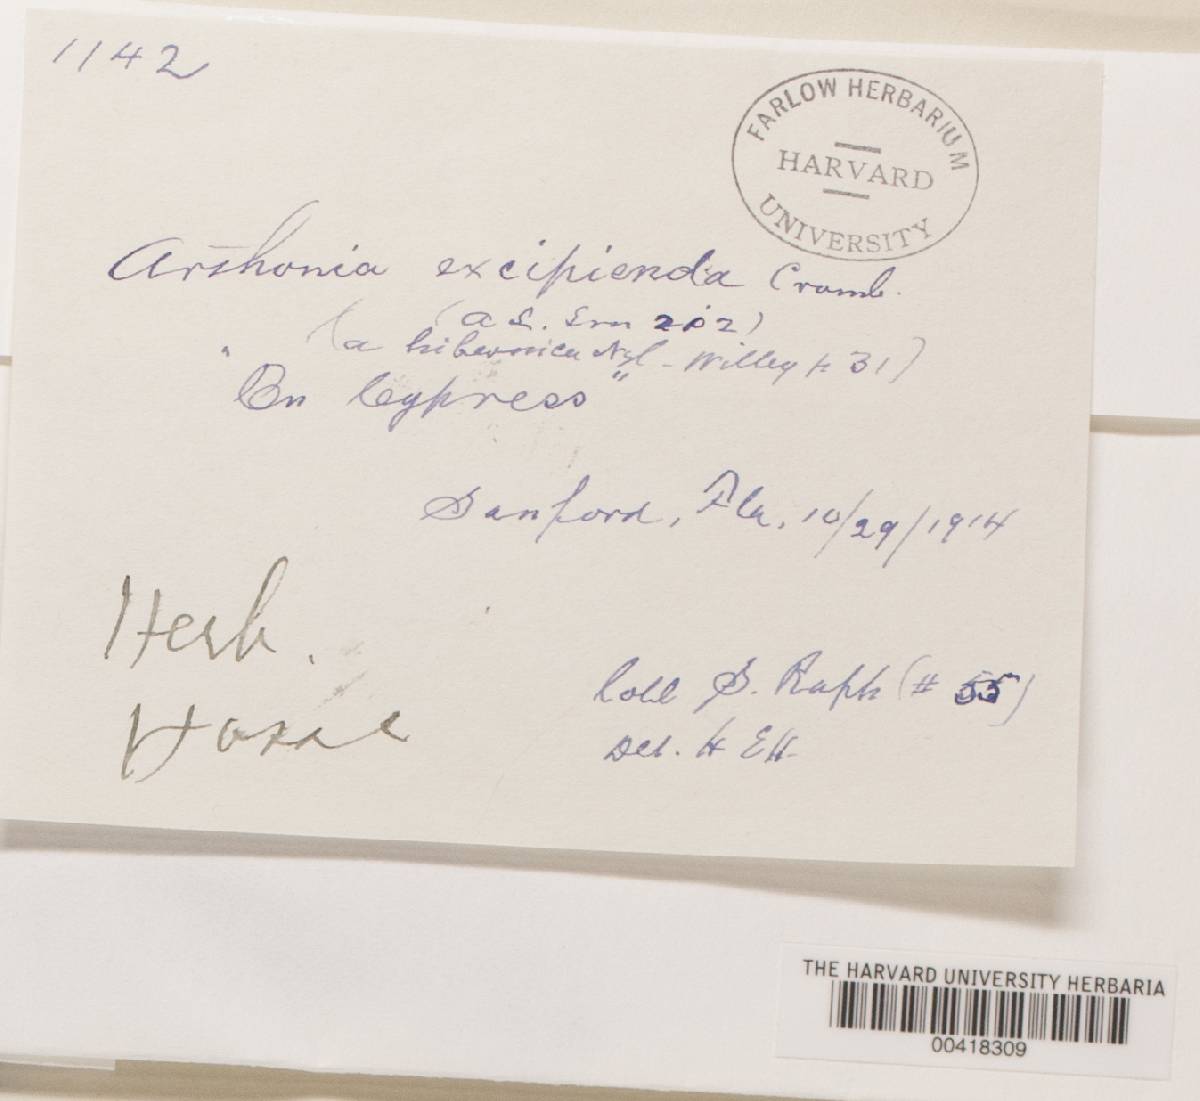 1142
FARLOW HERBARIUM
HARVARD
UNIVERSITY
Arthonia excipienda Cromb.
(a hibernica Nyl - Willey p. 31)
"On Cypress"
Sanford, Fla, 10/29/1914
Herb.
Hasse
Coll S. Rapp (# 55)
Det. H E H.
THE HARVARD UNIVERSITY HERBARIA
00418309